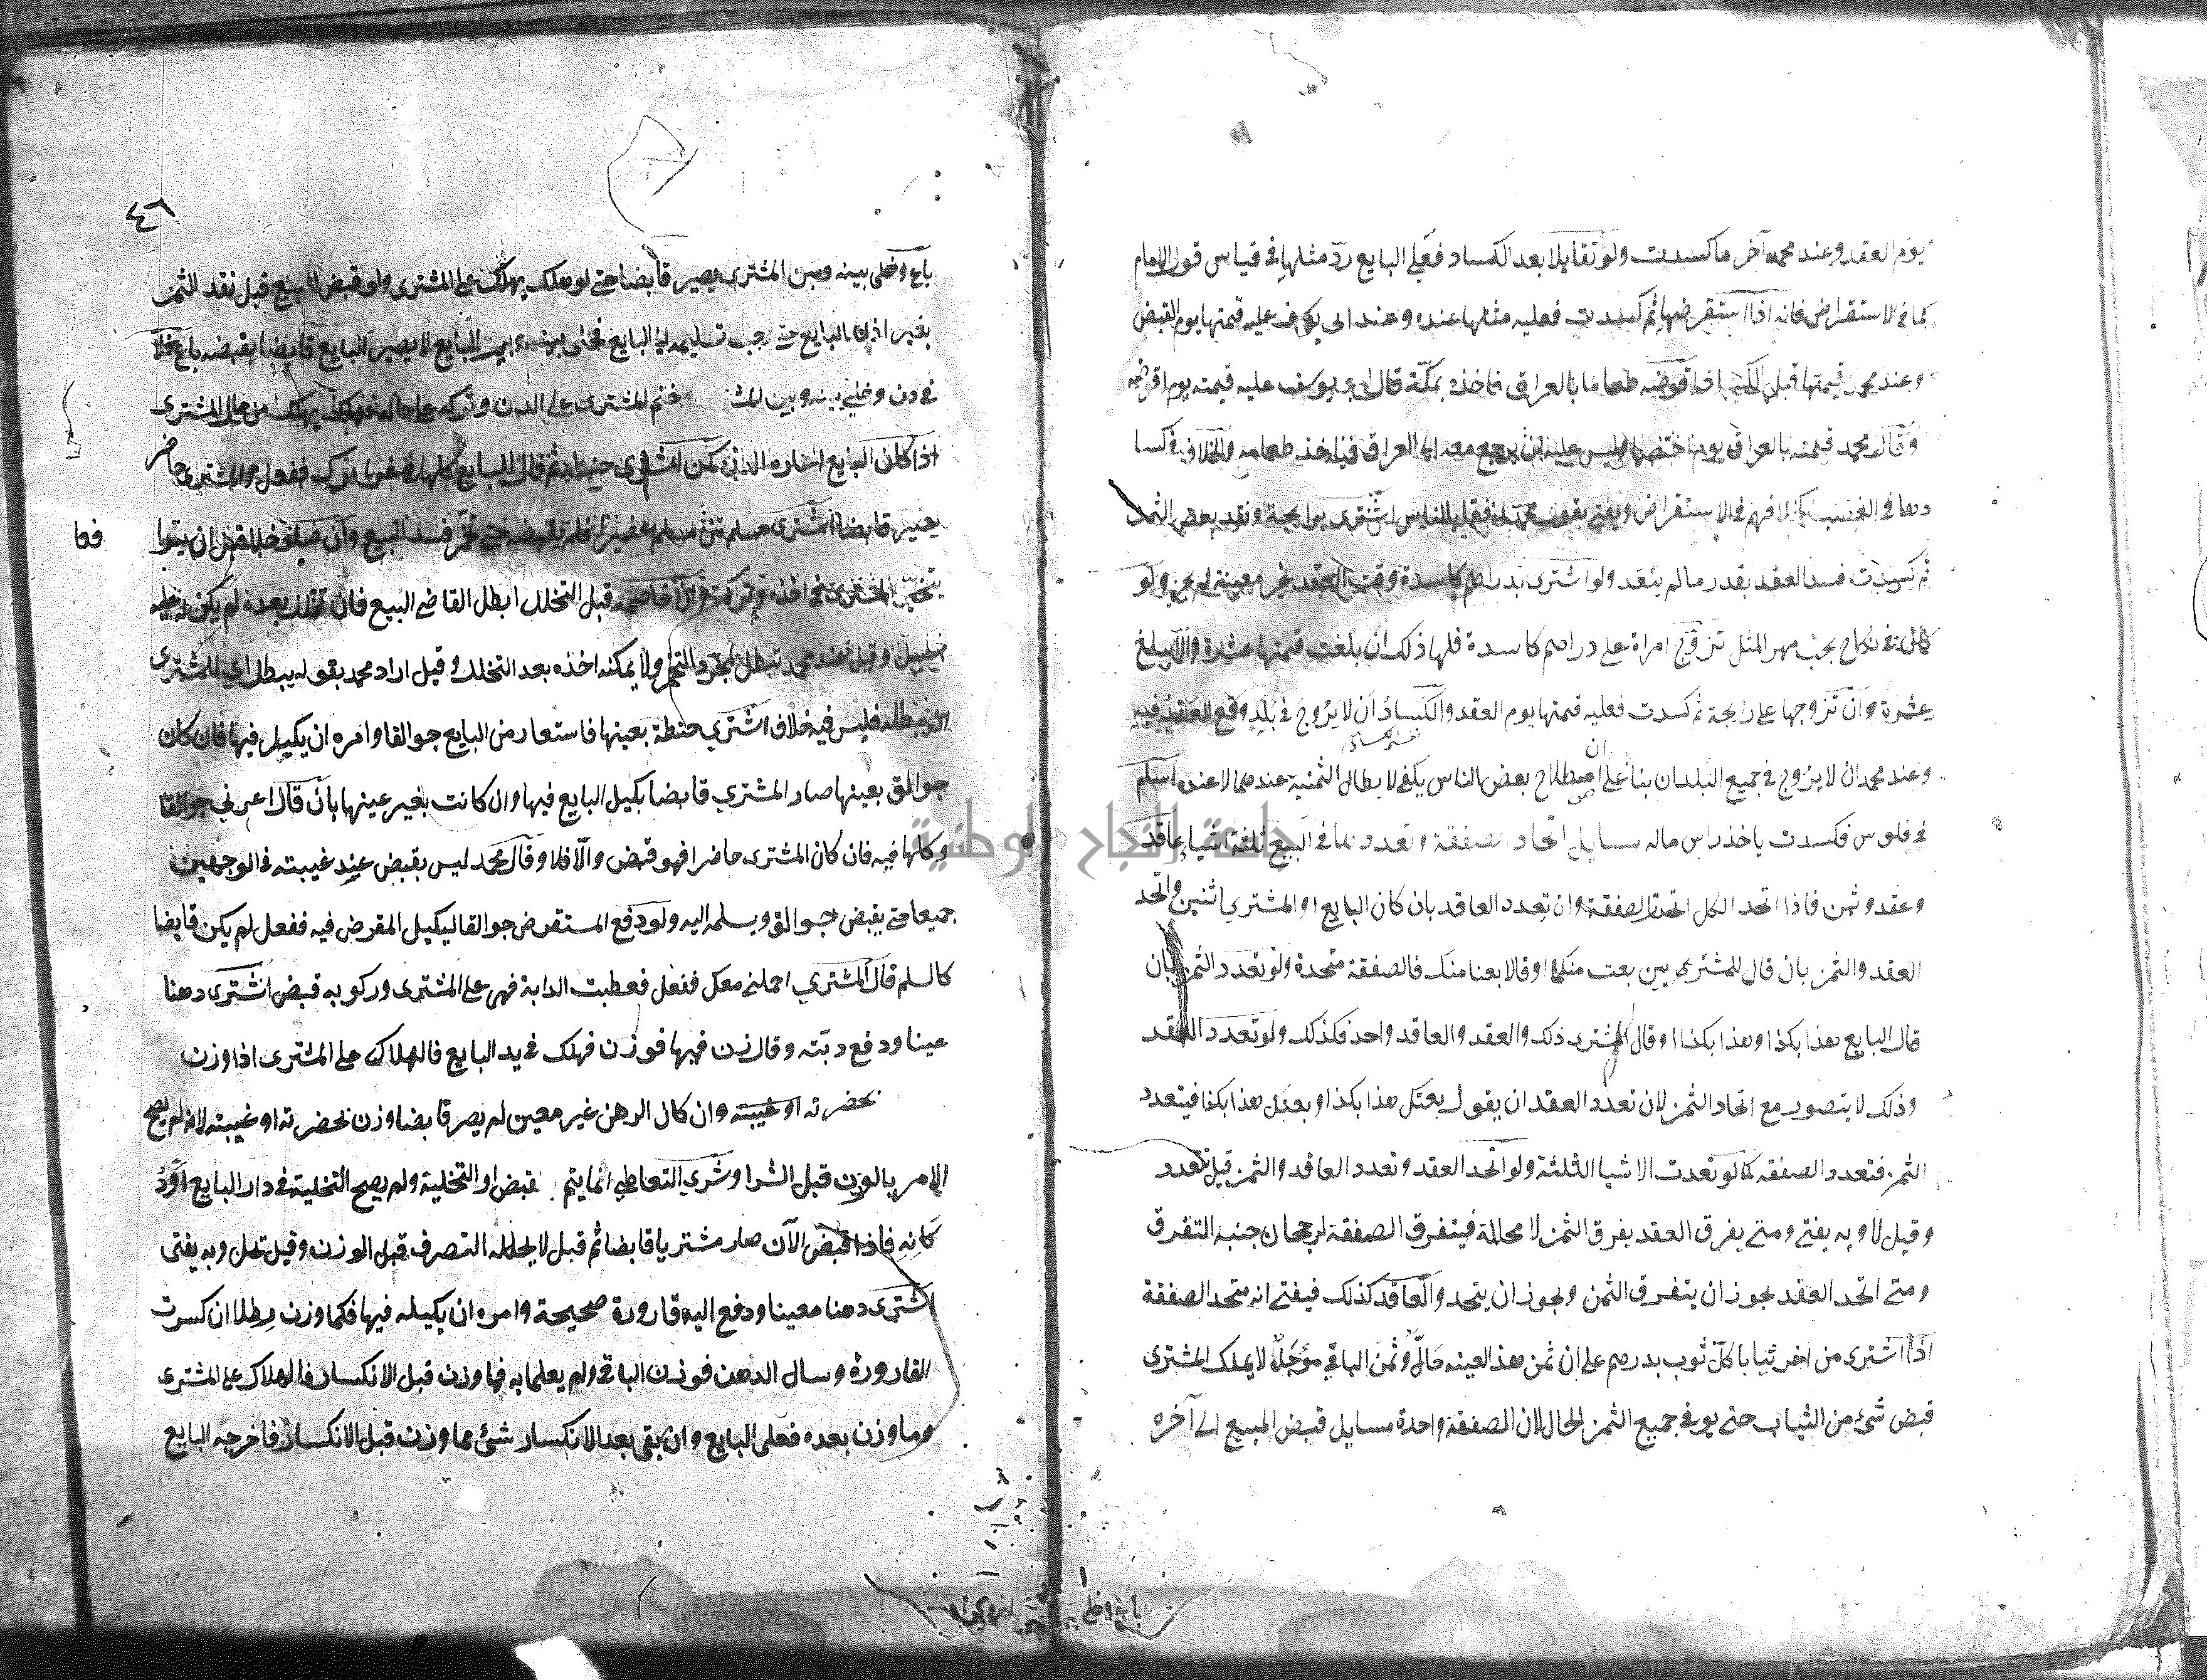 يوم العقد وعند محمد آخر ما كسدت ولو تقايلا بعد الكساد فعلى البايع رد مثلها في قياس قول الامام
كما في الاستقراض فانه اذا استقرضها ثم كسدت فعليه مثلها عنده وعند ابي يوسف عليه قيمتها يوم القبض
وعند محمد قيمتها قبل اقرضه طعاما بالعراق فاخذه بمكة قال ابو يوسف عليه قيمته يوم اقرضه
وقال محمد قيمته بالعراق يوم اختصما وليس عليه ان يرجع معه الى العراق فياخذ طعامه والخلاف في كسا
دها في الغصب كخلافهم في الاستقراض ويفتى بقول محمد اشترى برايجة ونقد بعض الثمن
ثم كسدت فسد العقد بقدر ما لم ينقد ولو اشترى بدراهم كاسدة وقت العقد غير معينة لم يجز ولو
كان في نكاح يجب مهر المثل تزوج امراة على دراهم كاسدة فلها ذلك ان بلغت قيمتها عشرة والا يبلغ
عشرة وان تزوجها على رايجة ثم كسدت فعليه قيمتها يوم العقد والكساد ان لا يروج في بلد وقع العقد فيه
وعند محمد ان لا يروج في جميع البلدان بنا على ان اصطلاح بعض الناس يكفي لابطال الثمنية عندهما لا عنده اسلم
في فلوس فكسدت ياخذ راس ماله مسايل اتحاد الصفقة وتعددها في البيع ثلثة اشياء عاقد
وعقد وثمن فاذا اتحد الكل اتحدت الصفقة وان تعدد العاقد بان كان البايع او المشتري اثنين واتحد
العقد والثمن بان قال للمشتريين بعت منكما او قالا بعنا منك فالصفقة متحدة ولو تعدد الثمن بان
قال البايع هذا بكذا وهذا بكذا او قال المشترى ذلك والعقد والعاقد واحد فكذلك ولو تعدد العقد
وذلك لا يتصور مع اتحاد الثمن لان تعدد العقد ان يقول بعتك هذا بكذا وبعتك هذا بكذا فيتعدد
الثمن فتعدد الصفقه كما لو تعددت الاشيا الثلثة ولو اتحد العقد وتعدد العاقد والثمن قيل تعدد
وقيل لا وبه يفتى ومتى يفرق العقد يفرق الثمن لا محالة فيتفرق الصفقة لرجحان جنبه التفرق
ومتى اتحد العقد يجوز ان يتفرق الثمن ويجوز ان يتحد والعاقد كذلك فيفتى انه متحد الصفقة
اذا اشترى من اخر ثيابا كل ثوب بدرهم على ان ثمن هذا بعينه حال وثمن الباقي مؤجل لا يملك المشترى
قبض شئ من الثياب حتى يوفي جميع الثمن الحال لان الصفقة واحدة مسايل قبض المبيع الى آخره
باع وخلى
جامعة النجاح الوطنية
٤٦
باع وخلى بينه وبين المشترى يصير قابضا حتى لو هلك يهلك على المشترى ولو قبض المبيع قبل نقد الثمن
بغير اذن البايع تسليمه الى البايع فخلى بينه وبين البايع لا يصير البايع قابضا يقبضه باع خلا
في دن وخلى بينه وبين ختم المشترى على الدن وتركه على حاله فهلك يهلك من مال المشترى
حنطة ثم قال للبايع ففعل والمشترى حاضر
يصير قابضا اشترى مسلم من مسلم عصيرا فلم يقبضه حتى تخمر فسد البيع وان صار خلا قبل ان يتوا
فعا
يتخير المشترى في اخذه وتركه فان خاصمه قبل التخلل ابطل القاضى البيع فان تخلل بعده لم يكن له عليه
سبيل وقيل عند محمد تبطل بمجرد التخمر ولا يمكنه اخذه بعد التخلل وقيل اراد محمد بقوله يبطل اي للمشترى
ان يبطله فليس فيه خلاف اشترى حنطة بعينها فاستعار من البايع جوالقا وامره ان يكيل فيها فان كان
جوالق بعينها صار المشتري قابضا بكيل البايع فيها وان كانت بغير عينها بان قال اعرني جوالقا
وكلها فيه فان كان المشترى حاضرا فهو قبض والا فلا وقال محمد ليس بقبض عند غيبته في الوجهين
جميعا حتى يقبض جوالق ويسلمه اليه ولو دفع المستقرض جوالقا ليكيل المقرض فيه ففعل لم يكن قابضا
كالسلم قال المشتري احملني معك ففعل فعطبت الدابة فهى على المشترى وركوبه قبض اشترى دهنا
عينا ودفع دبته وقال زن فيها فوزن فهلك في يد البايع فالهلاك على المشترى اذا وزن
بحضرته او غيبته وان كان الدهن غير معين لم يصر قابضا وزن بحضرته او غيبته لانه لم يصح
الامر بالوزن قبل الشرا وشرى التعاطي انما يتم بقبض او التخلية ولم يصح التخلية في دار البايع او د
كانه فاذا قبض الآن صار مشتريا قابضا ثم قيل لا يحل له التصرف قبل الوزن وقيل تحل وبه يفتى
اشترى دهنا معينا ودفع اليه قارورة صحيحة وامره ان يكيله فيها فكما وزن رطلا انكسرت
القارورة وسال الدهن فوزن الباقي ولم يعلما به فما وزن قبل الانكسار فالهلاك على المشترى
وما وزن بعده فعلى البايع وان بقى بعد الانكسار شئ مما وزن قبل الانكسار فاخرجه البايع